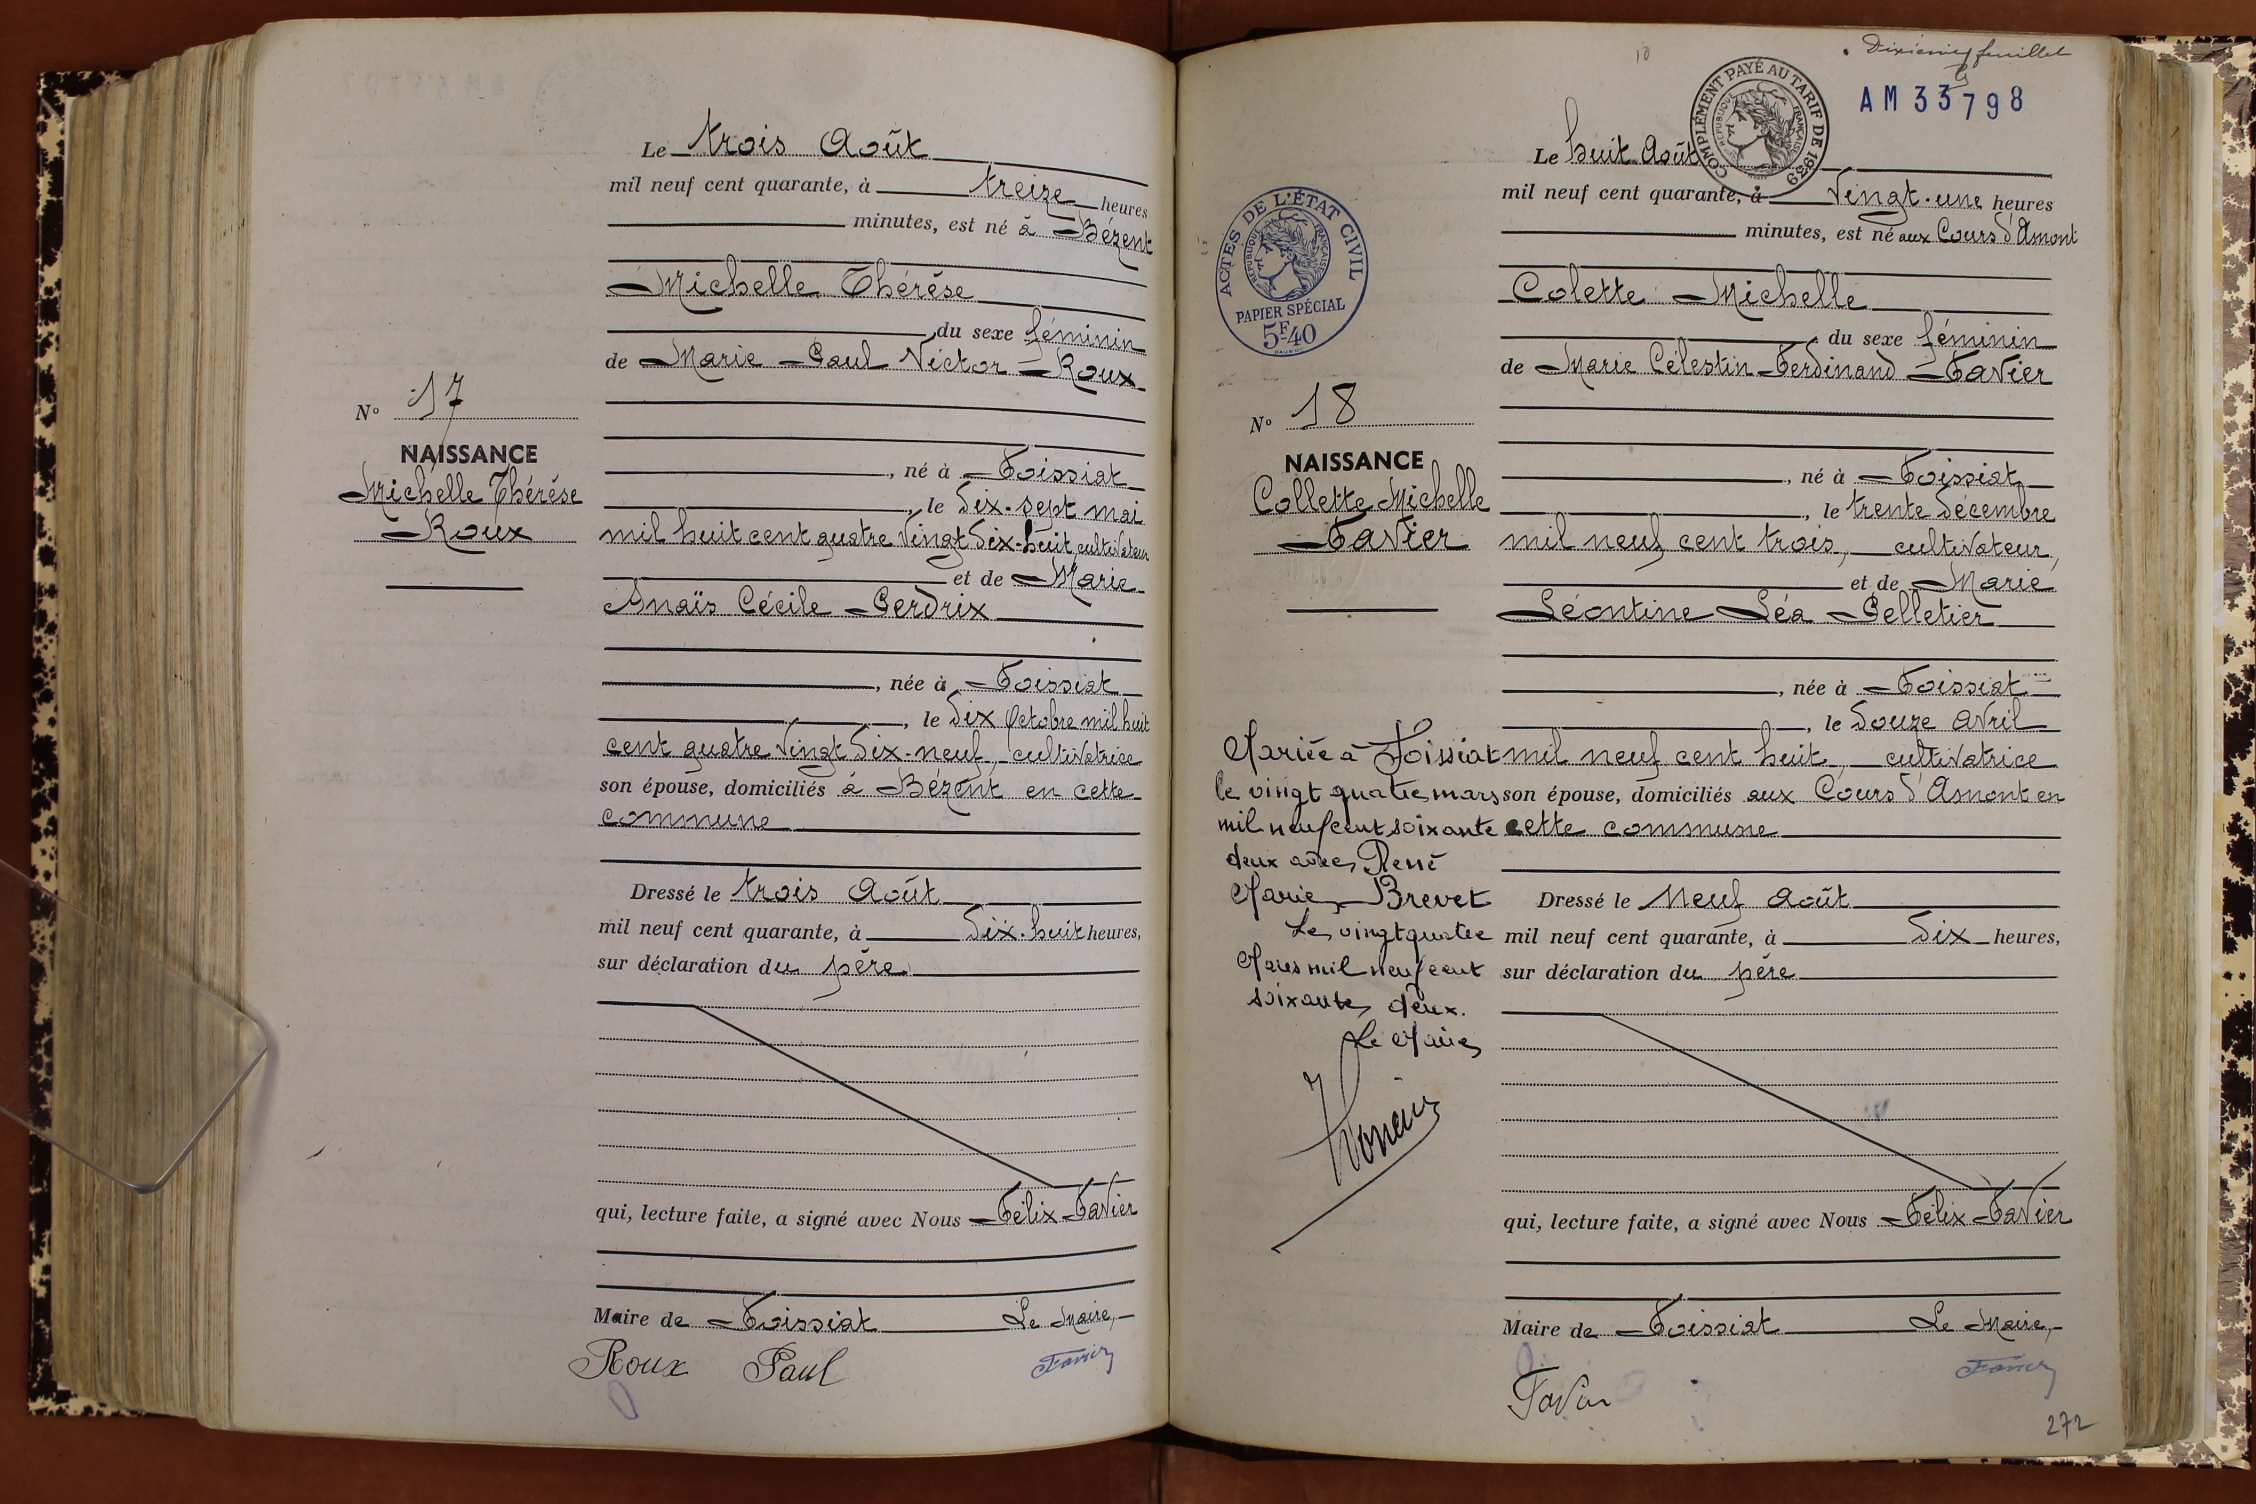 Le trois Août
mil neuf cent quarante, à treize heures
minutes, est né à Bézent
Michelle Thérèse
du sexe féminin
de Marie Paul Victor Roux
No 17
NAISSANCE
Michelle Thérèse
Roux
, né à Foissiat
, le dix-sept mai
mil huit cent quatre vingt dix-huit, cultivateur
et de Marie
Anaïs Cécile Perdrix
, née à Foissiat
, le dix Octobre mil huit
cent quatre vingt dix-neuf, cultivatrice
son épouse, domiciliés à Bézent en cette
commune
Dressé le trois Août
mil neuf cent quarante, à dix-huit heures,
sur déclaration du père
qui, lecture faite, a signé avec Nous Félix Favier
Maire de Foissiat Le Maire,
Roux Paul Favier
10
Dixième feuillet
AM 33798
COMPLÉMENT PAYÉ AU TARIF DE 1939
RÉPUBLIQUE FRANÇAISE
Le huit Août
mil neuf cent quarante, à vingt-une heures
minutes, est né aux Cours d'Amont
ACTES DE L'ÉTAT CIVIL
RÉPUBLIQUE FRANÇAISE
PAPIER SPÉCIAL
5F40
Colette Michelle
du sexe féminin
de Marie Célestin Ferdinand Favier
No 18
NAISSANCE
Collette Michelle
Favier
, né à Foissiat
, le trente décembre
mil neuf cent trois, cultivateur,
et de Marie
Léontine Léa Pelletier
, née à Foissiat
, le douze avril
mil neuf cent huit, cultivatrice
son épouse, domiciliés aux Cours d'Amont en
cette commune
Mariée à Foissiat
le vingt quatre mars
mil neuf cent soixante
deux avec René
Marie Brevet
Le vingt quatre
Mars mil neuf cent
soixante deux.
Le Maire
Dressé le neuf Août
mil neuf cent quarante, à dix heures,
sur déclaration du père
qui, lecture faite, a signé avec Nous Félix Favier
Maire de Foissiat Le Maire,
Favier Favier
272